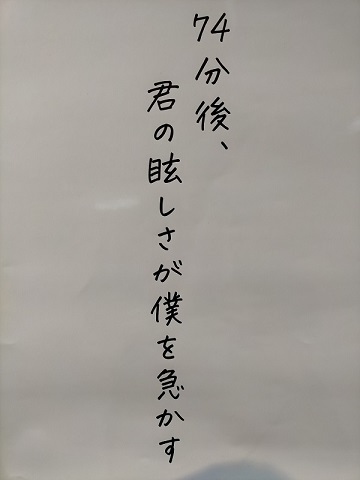 74分後、
君の眩しさが僕を急かす